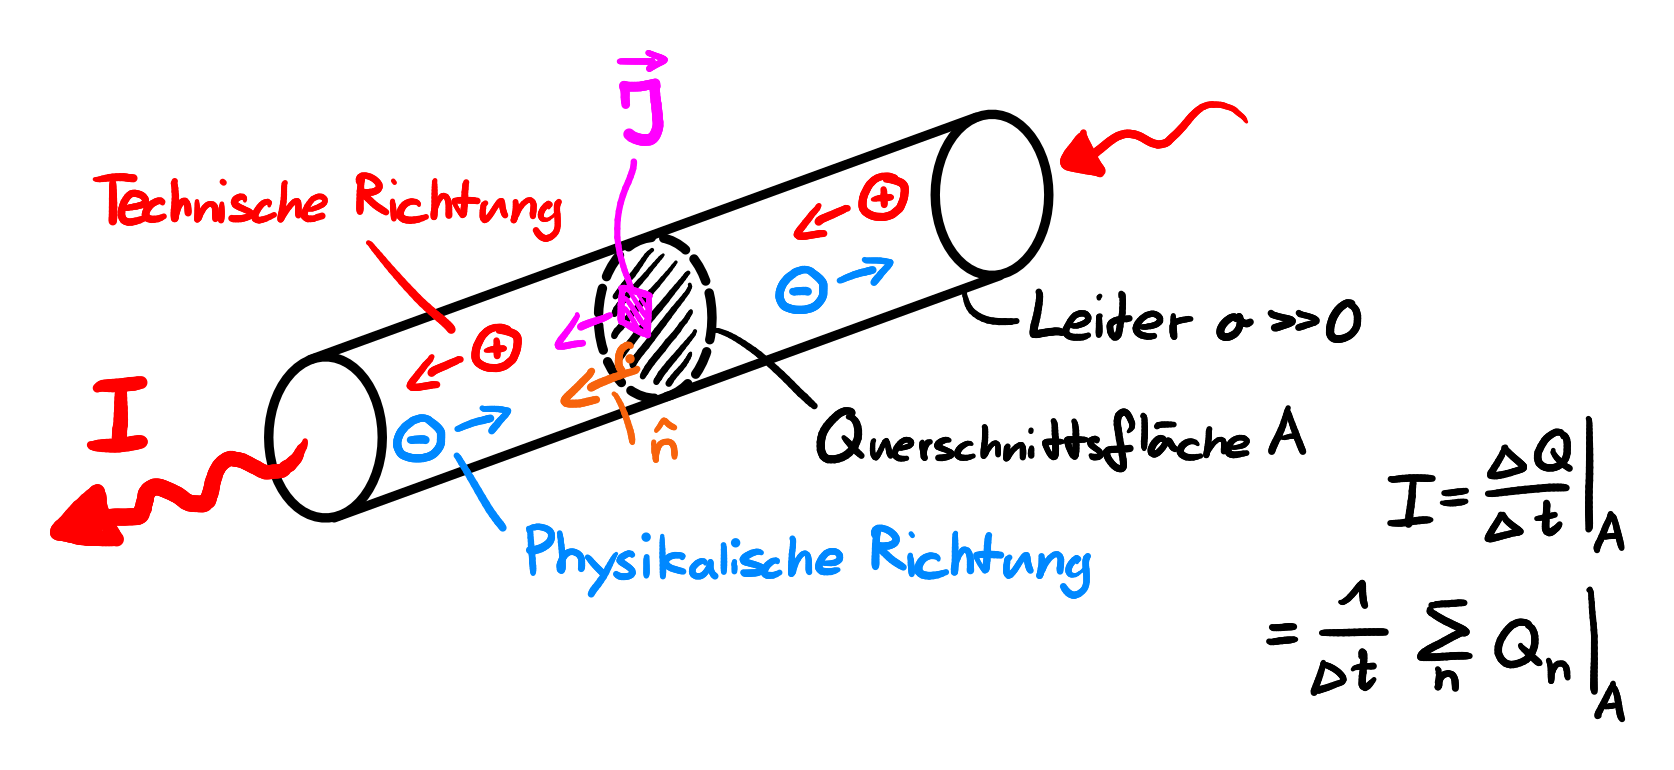 J⃗
Technische Richtung
+
-
+
-
Leiter σ >> 0
I
n̂
Querschnittsfläche A
Physikalische Richtung
I = ΔQ/Δt |A
= 1/Δt Σn Qn |A